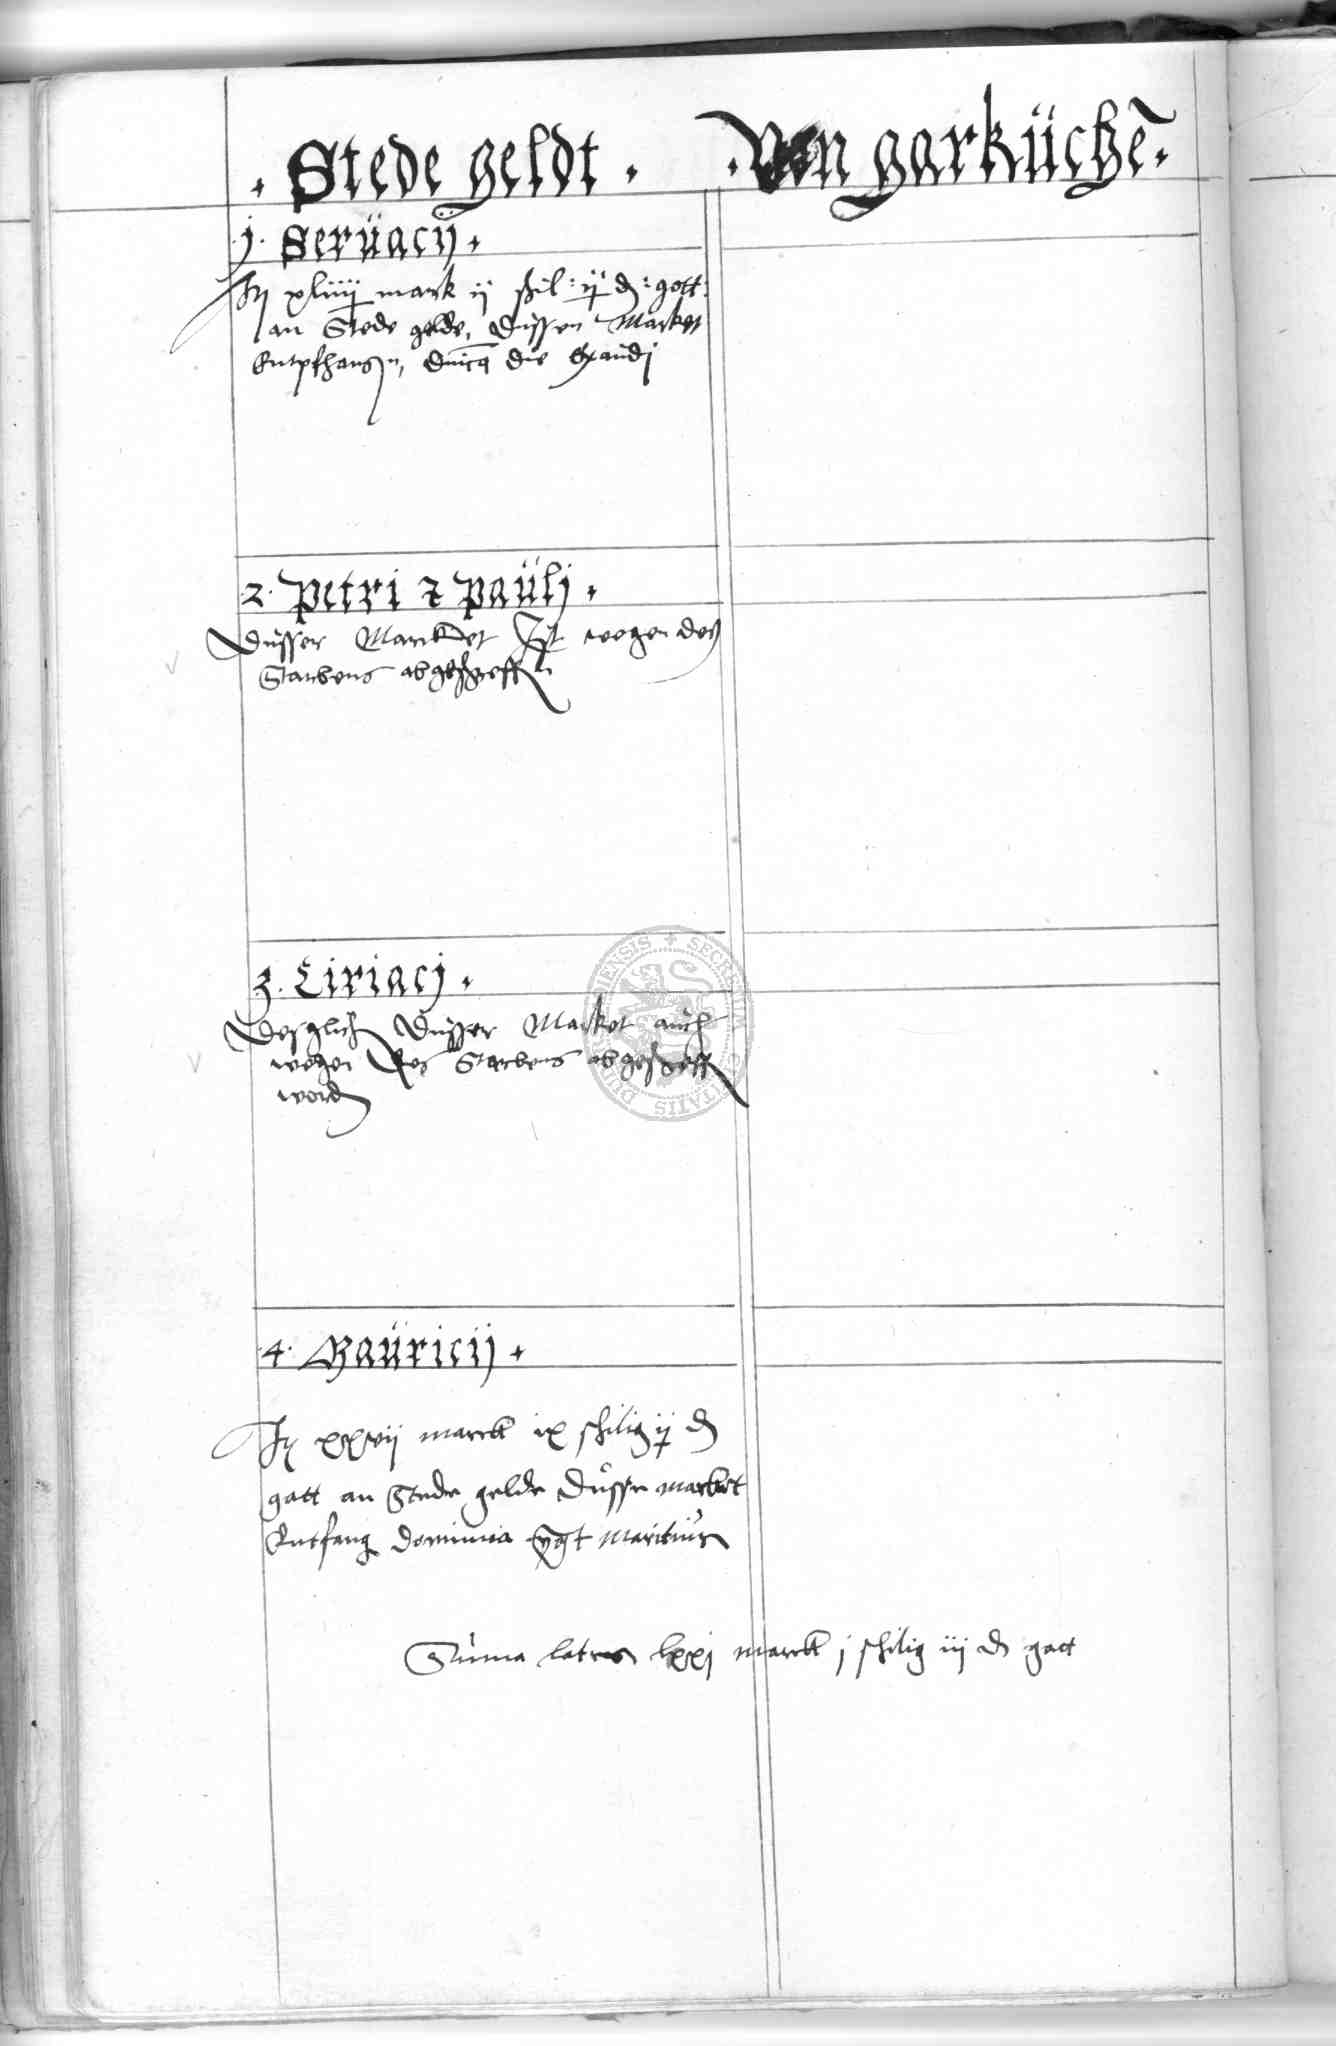 . Stede geldt . . Von garküchē .
.j. Serüacij .
It xliiij mark ij schil: ij d: gott:
an Stede gelde, düssen Market
Entpfhangen, dnica die Exaudj
.2. Petri z Paülj .
Düsser Marcket Ist wegen des
Starbens abgeschrefft
3. Ciriacj .
Desglich Düsser Market auch
wegen des Starbens abgeschrefft
word
.4. Maüricij .
It xxvij marck ix schilig ij d
gatt an Stede gelde düsse market
Entfang dominica
Sūma lateris lxxj marck j schilig iij d gatt
SECRETUM CIVITATIS